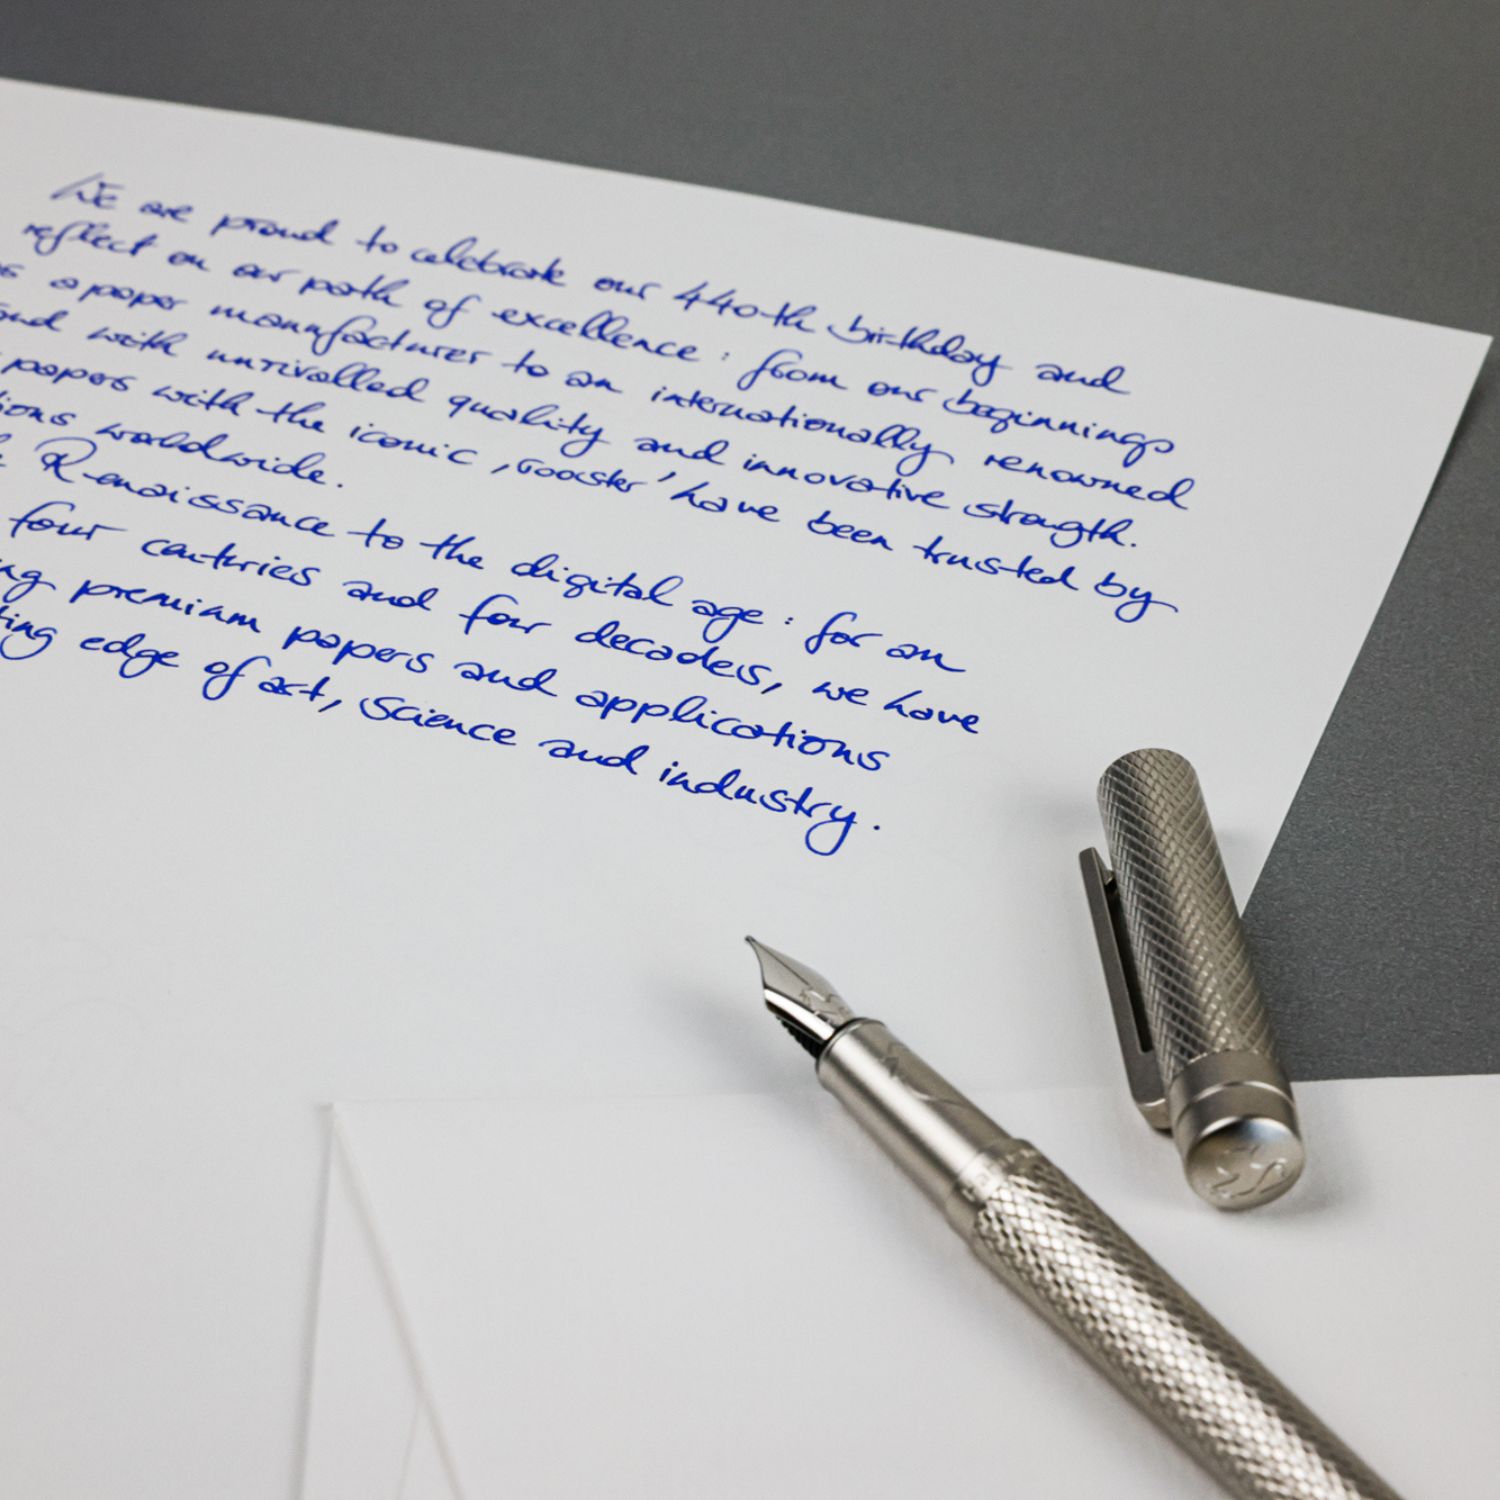 WE are proud to celebrate our 440th birthday and
reflect on our path of excellence: from our beginnings
as a paper manufacturer to an internationally renowned
and with unrivalled quality and innovative strength.
papers with the iconic ‚rooster' have been trusted by
ions worldwide.
Renaissance to the digital age: for an
four centuries and four decades, we have
ng premium papers and applications
ting edge of art, Science and industry.